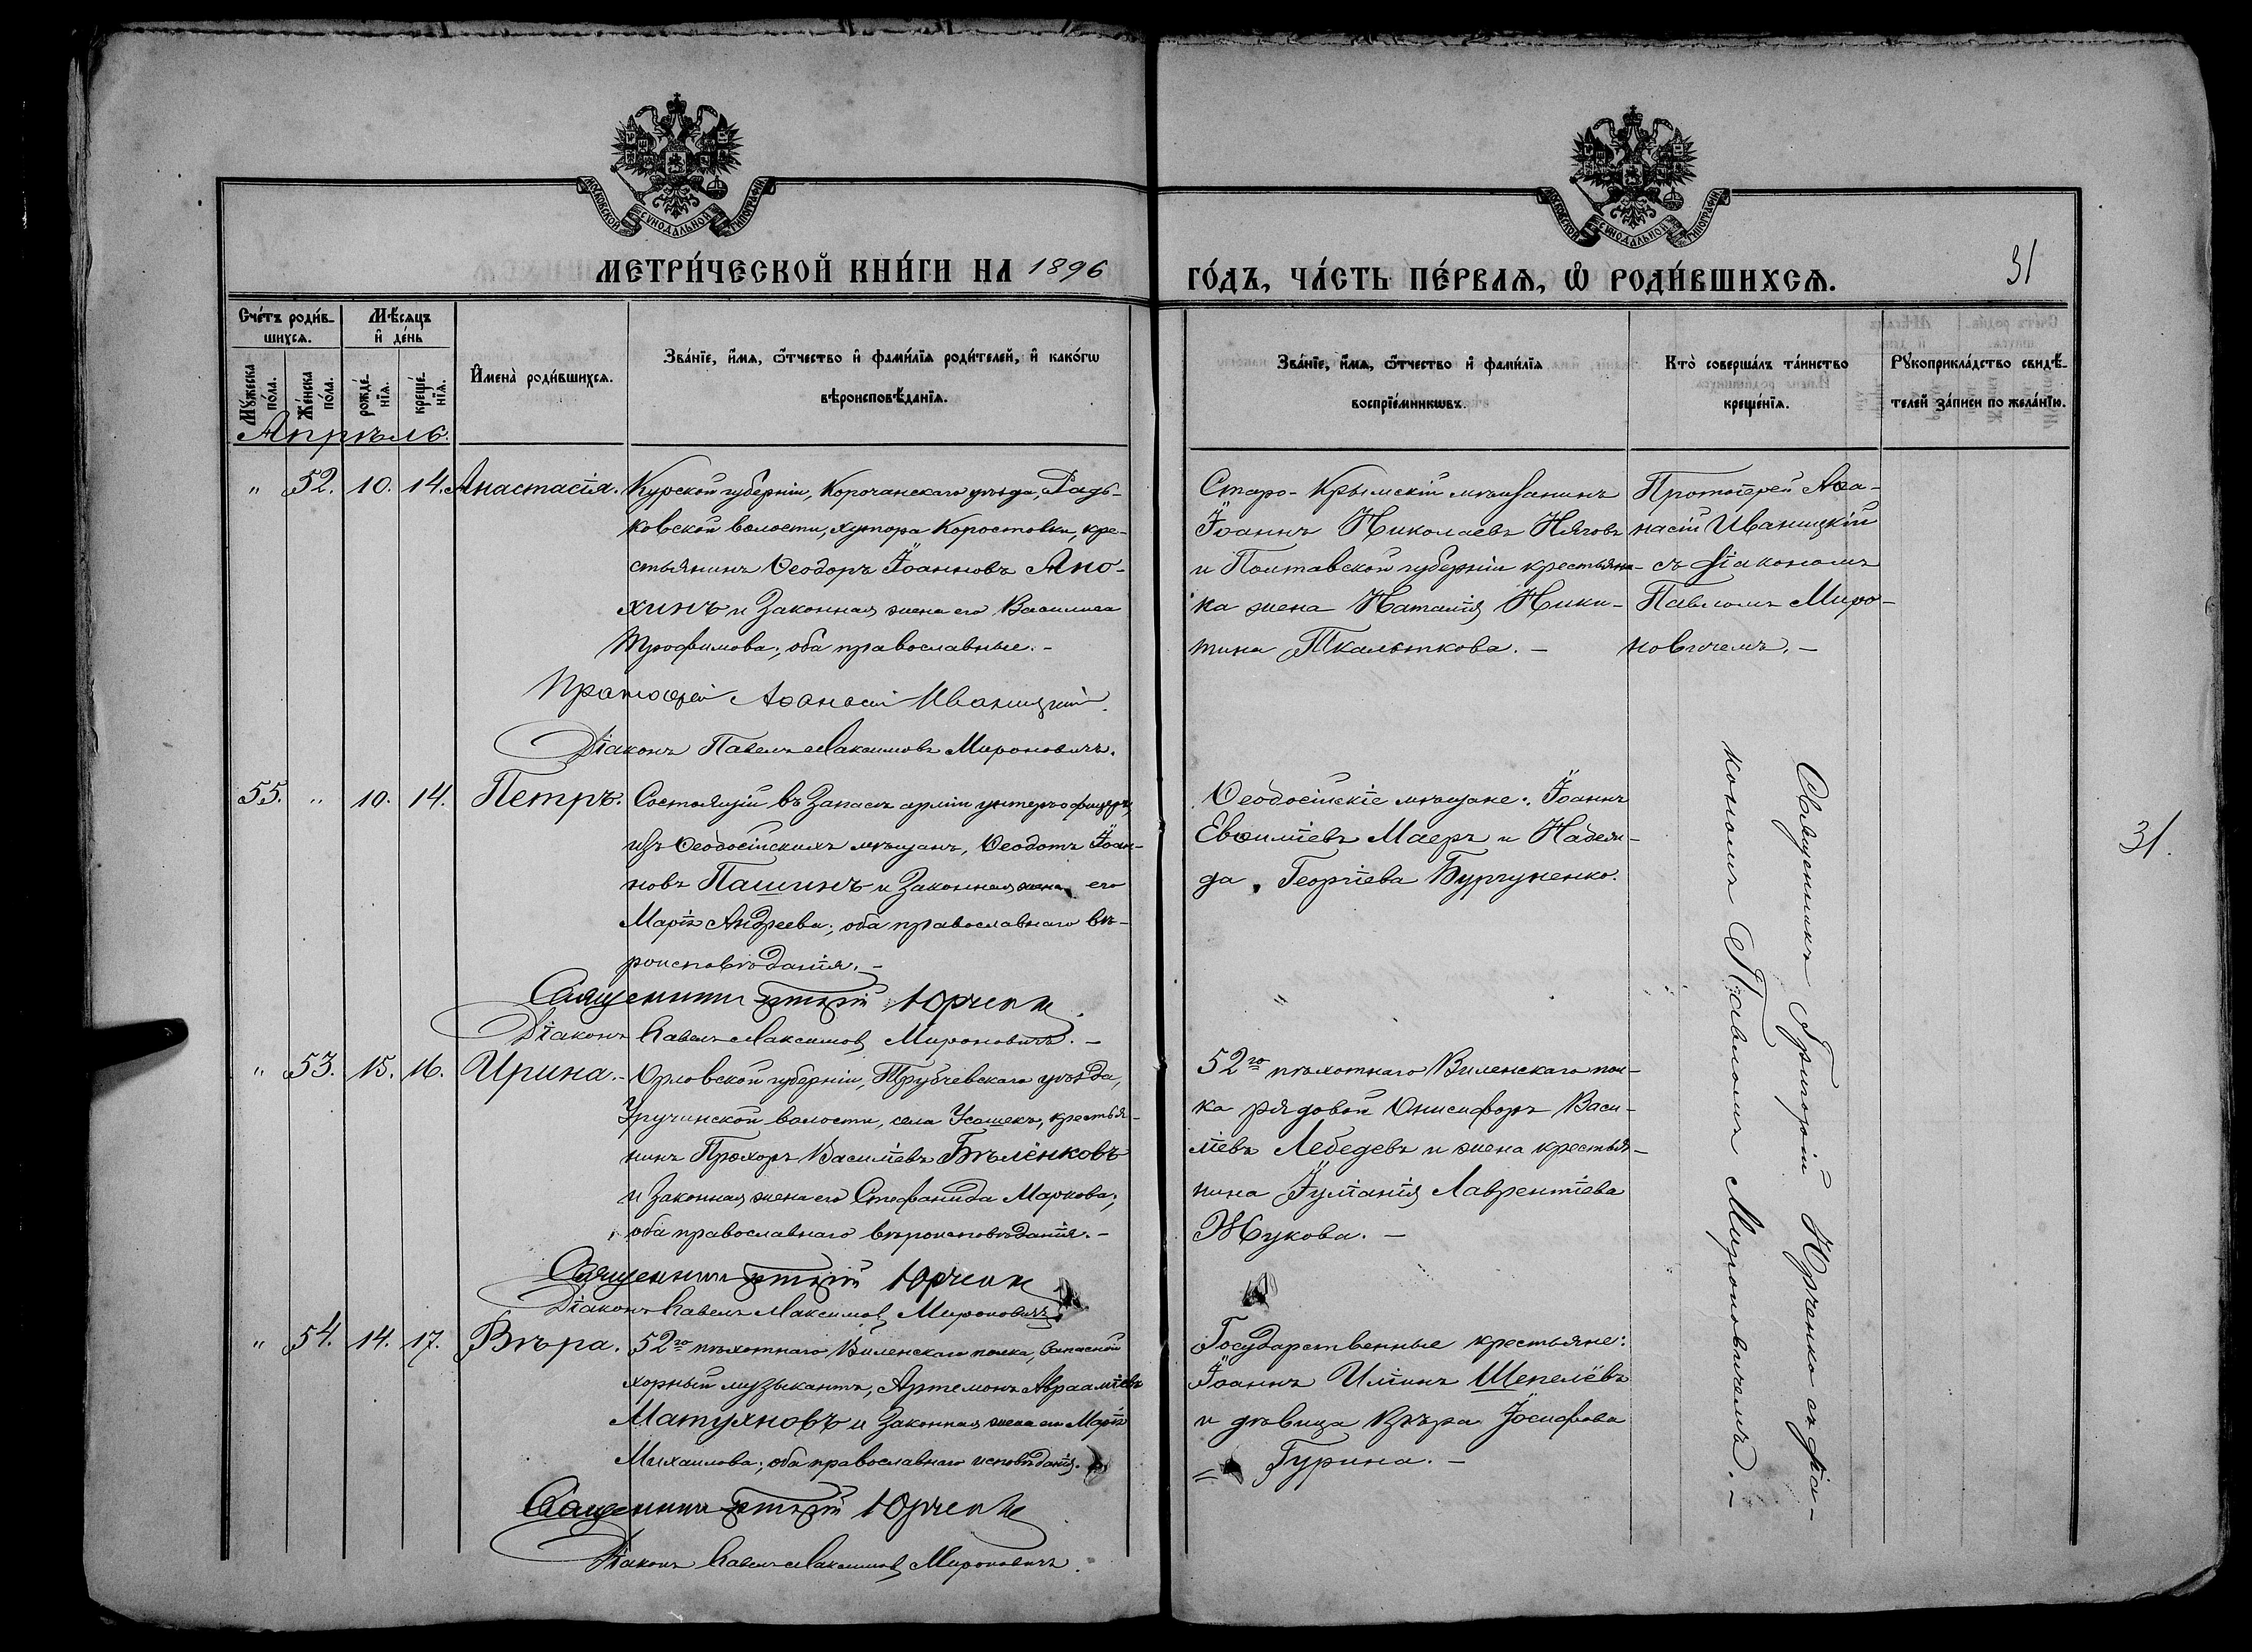 МОСКОВСКОЙ СѴНОДАЛЬНОЙ ТИПОГРАФІИ
МОСКОВСКОЙ СѴНОДАЛЬНОЙ ТИПОГРАФІИ
МЕТРИ́ЧЕСКОЙ КНИ́ГИ НА 1896
ГО́ДЪ, ЧА́СТЬ ПЕ́РВАѦ, Ѡ РОДИ́ВШИХСѦ.
31
Сче́тъ роди́в-
шихсѧ.
Мѣ́сѧцъ
и҆ де́нь
Мꙋ́жеска
по́ла.
Же́нска
по́ла.
рожде́-
нїѧ.
креще́-
нїѧ.
И҆мена̀ роди́вшихсѧ.
Зва́нїе, и҆́мѧ, ѻ҆́тчество и҆ фами́лїѧ роди́телей, и҆ како́гѡ
вѣроисповѣ́данїѧ.
Зва́нїе, и҆́мѧ, ѻ҆́тчество и҆ фами́лїѧ
воспрїе́мникѡвъ.
Кто̀ соверша́лъ та́инство
креще́нїѧ.
Рꙋкоприкла́дство свидѣ́-
телей за́писи по жела́нїю.
Апрѣль.
" 52. 10. 14. Анастасія. Курской губерніи, Корочанскаго уѣзда, Радь-
ковской волости, хутора Коростовки, кре-
стьянинъ Ѳеодоръ Іоанновъ Ано-
хинъ и законная жена его Василиса
Трофимова; оба православные. -
Протоіерей Аѳанасій Иваницкій.
Діаконъ Павелъ Максимовъ Мироновичъ.
Старо-Крымскій мѣщанинъ
Іоаннъ Николаевъ Няговъ
и Полтавской губерніи крестьян-
ка жена Наталія Ники-
тина Ткалыткова. -
Протоіерей Аѳа-
насій Иваницкій
съ діакономъ
Павломъ Миро-
новичемъ. -
55. " 10. 14. Петръ. Состоящій въ запасѣ арміи унтеръ-офицеръ,
изъ Ѳеодосійскихъ мѣщанъ, Ѳеодотъ Іоан-
новъ Пашинъ и законная жена его
Марія Андреева; оба православнаго вѣ-
роисповѣданія. -
Священникъ Григорій Юрченко
Діаконъ Павелъ Максимовъ Мироновичъ. -
Ѳеодосійскіе мѣщане: Іоаннъ
Евѳиміевъ Маеръ и Надеж-
да Георгіева Бургуненко.
31.
" 53. 15. 16. Ирина. - Орловской губерніи, Трубчевскаго уѣзда,
Уручинской волости, села Усошекъ, крестья-
нинъ Прохоръ Василіевъ Бѣлёнковъ
и законная жена его Стефанида Маркова;
оба православнаго вѣроисповѣданія. -
Священникъ Григорій Юрченко
Діаконъ Павелъ Максимовъ Мироновичъ.
52го пѣхотнаго Виленскаго пол-
ка рядовой Онисифоръ Васи-
ліевъ Лебедевъ и жена крестья-
нина Іуліанія Лаврентіева
Жукова. -
" 54. 14. 17. Вѣра. 52го пѣхотнаго Виленскаго полка, запасной
хорный музыкантъ, Артемонъ Аврааміевъ
Матухновъ и законная жена его Марія
Михаилова; оба православнаго исповѣданія.
Священникъ Григорій Юрченко
Діаконъ Павелъ Максимовъ Мироновичъ.
Государственные крестьяне:
Іоаннъ Илiинъ Шепелёвъ
и дѣвица Вѣра Іосифова
Гурина. -
Священникъ Григорій Юрченко съ діа-
кономъ Павломъ Мироновичемъ. -